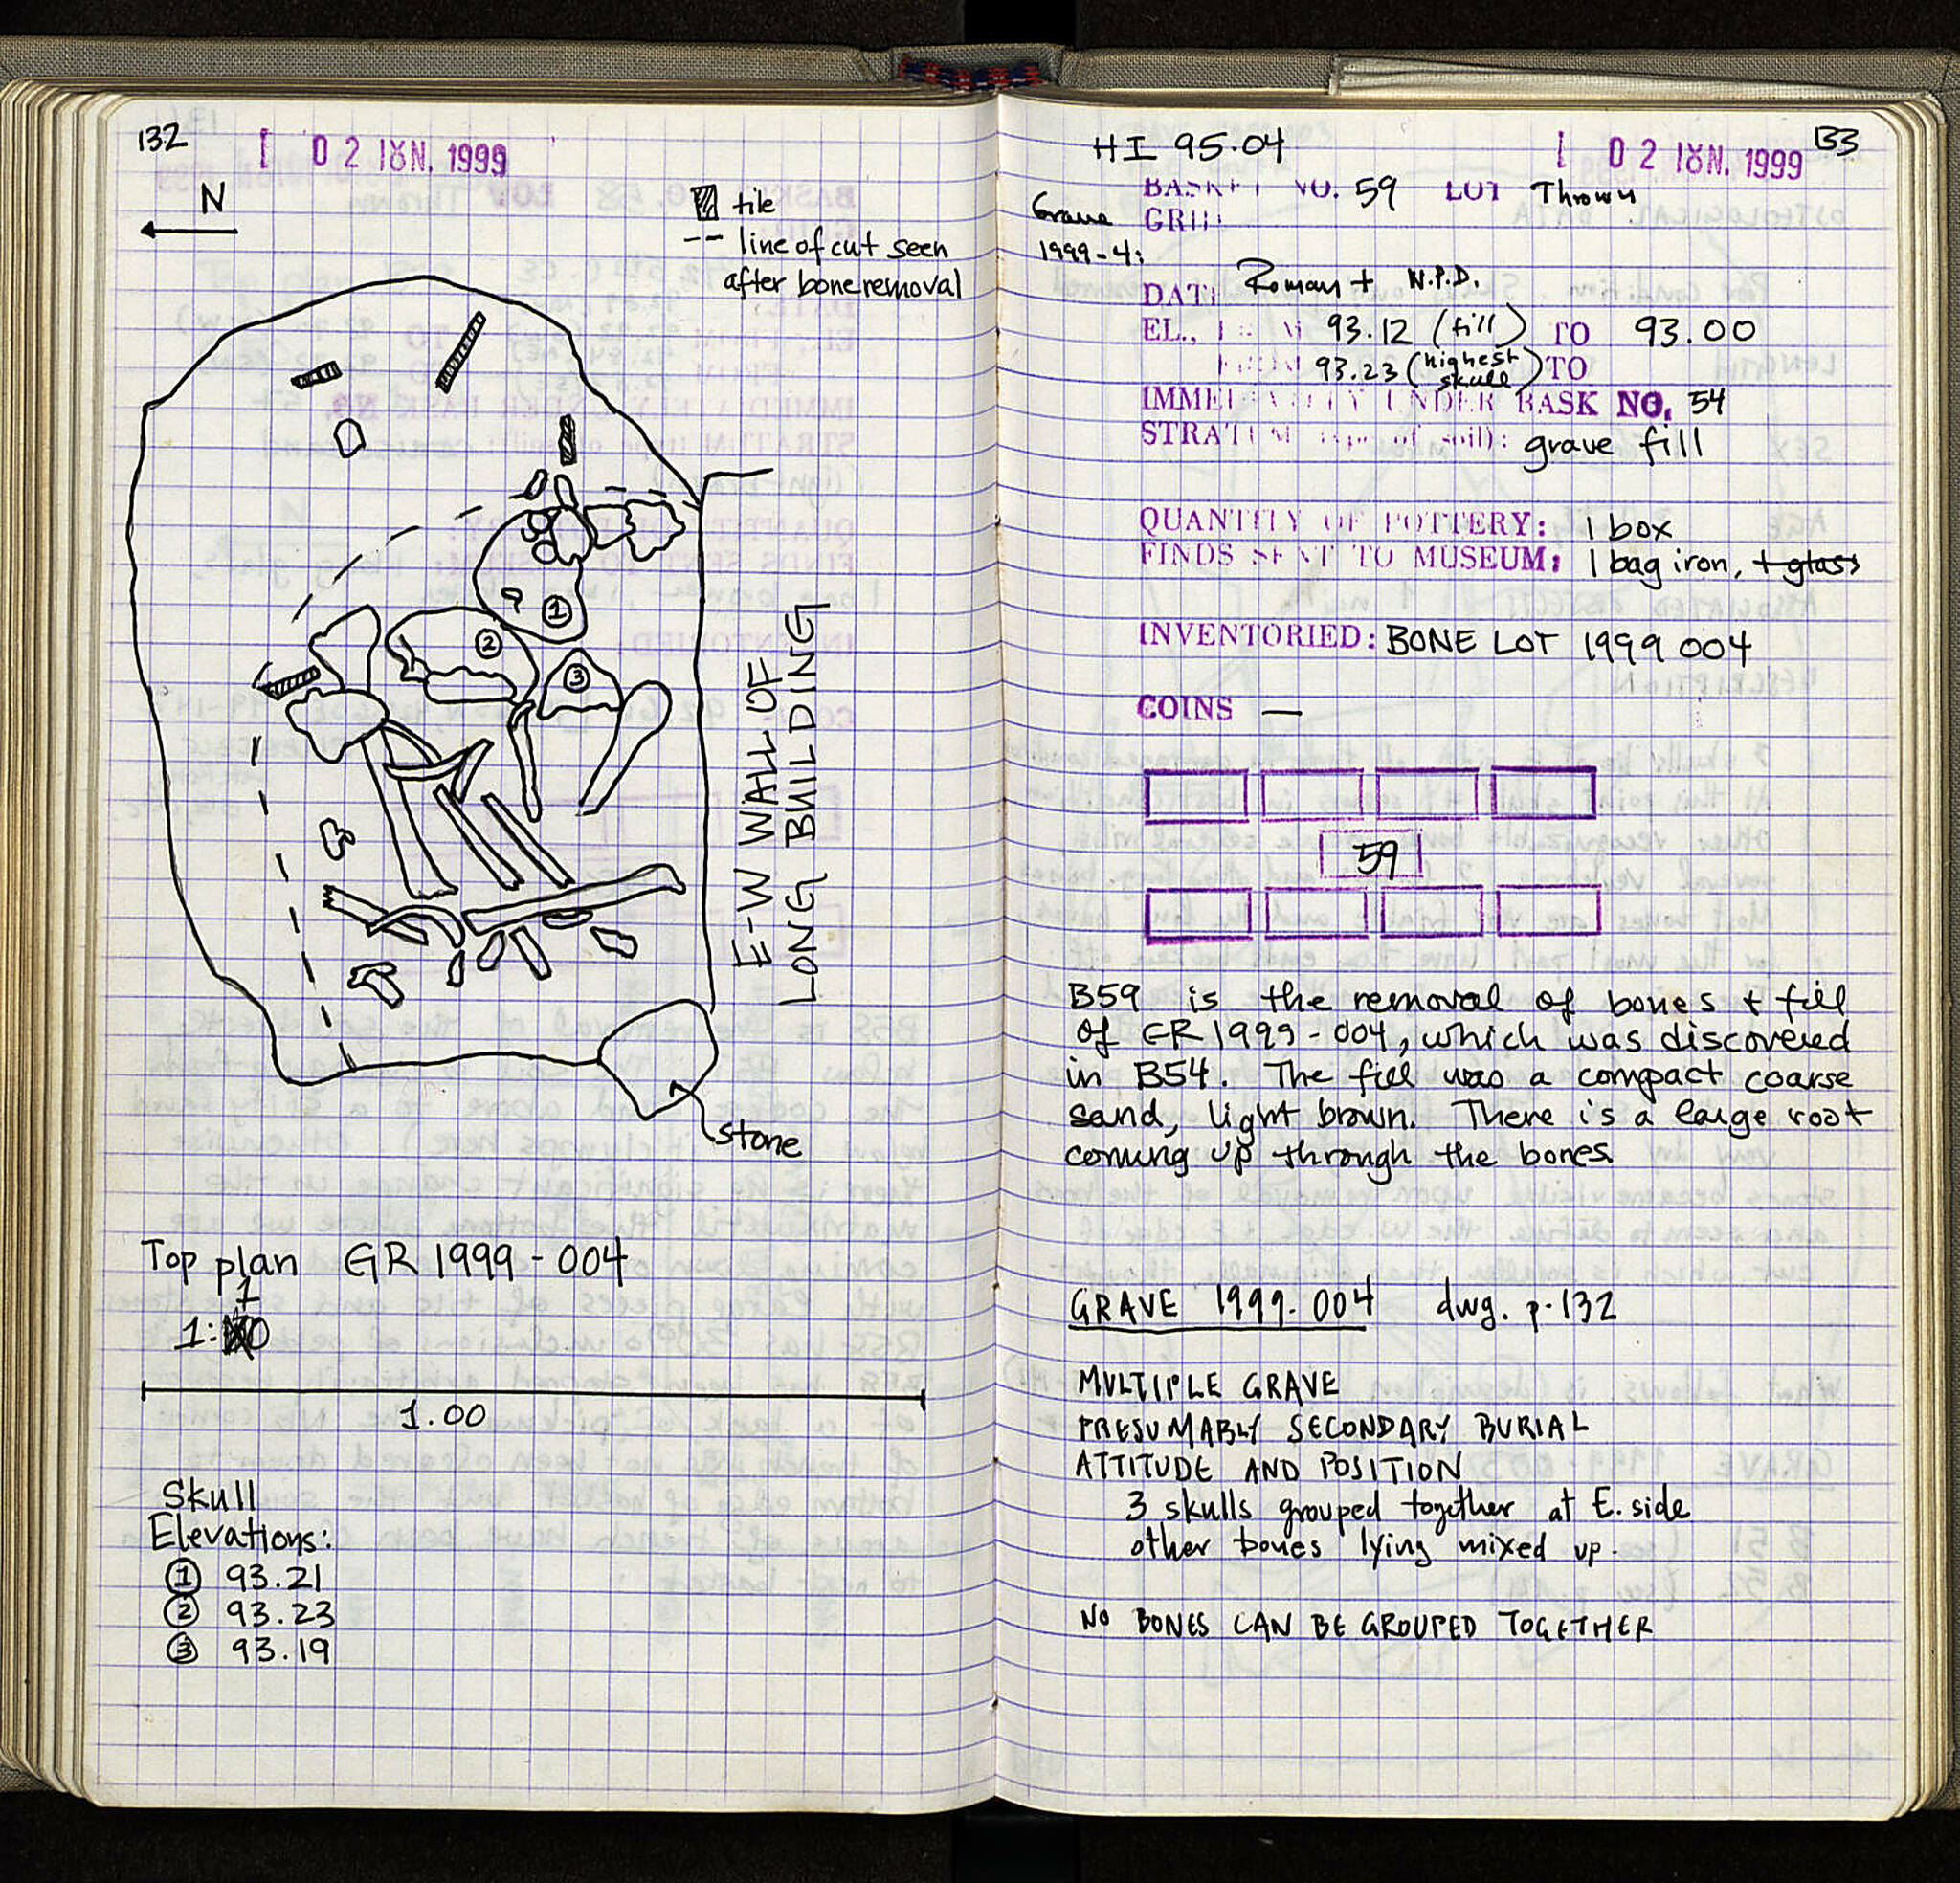 132
[ 02 ΙΟΥΝ. 1999
N
tile
-- line of cut seen
after bone removal
1
2
3
E-W WALL OF
LONG BUILDING
stone
Top plan GR 1999-004
1
1: 0
1.00
Skull
Elevations:
① 93.21
② 93.23
③ 93.19
HI 95-04
[ 02 ΙΟΥΝ. 1999
133
BASKET NO. 59 LOT Thrown
Grave
GRID
1999-4:
DATE Roman + N.P.D.
EL., FROM 93.12 (fill) TO 93.00
FROM 93.23 (highest skull) TO
IMMEDIATELY UNDER BASK NO. 54
STRATUM (type of soil): grave fill
QUANTITY OF POTTERY: 1 box
FINDS SENT TO MUSEUM: 1 bag iron, + glass
INVENTORIED: BONE LOT 1999 004
COINS —
59
B59 is the removal of bones + fill
of GR 1999-004, which was discovered
in B54. The fill was a compact coarse
sand, light brown. There is a large root
coming up through the bones.
GRAVE 1999-004 dwg. p.132
MULTIPLE GRAVE
PRESUMABLY SECONDARY BURIAL
ATTITUDE AND POSITION
3 skulls grouped together at E. side
other bones lying mixed up.
NO BONES CAN BE GROUPED TOGETHER